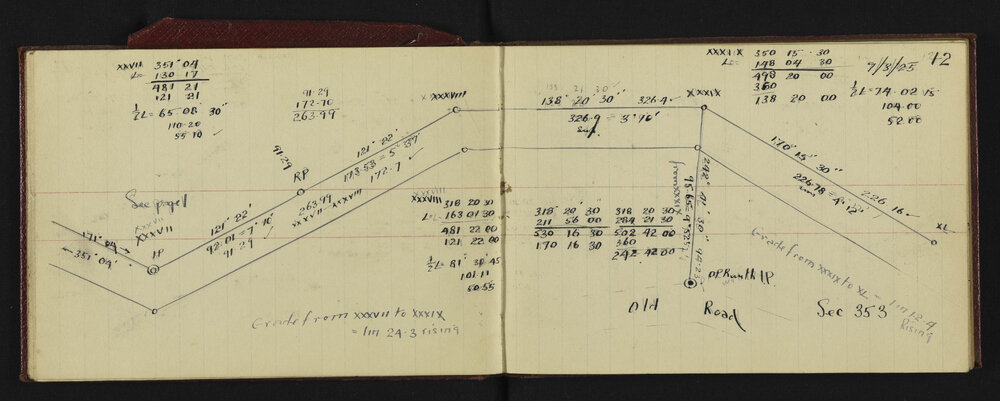 XXVII 351° 04
L= 130 17
481 21
121 21
½L= 65° 08' 30"
110.20
55.10 ✓
91.29
172.70
263.99
XXXVIII
91.29
RP
121° 22'
173.53 = 5° 39'
172.7 ✓
See page 1
XXVII
XXXVII
171° 04'
351° 04'
IP
121° 22'
92.01 = 7° 10'
91.29 ✓
263.99
XXXVII - XXXVIII
XXXVIII 318 20 30
L= 163 01 30
481 22 00
121 22 00
½L= 81° 30' 45
101.11
50.55
Grade from XXXVII to XXXIX
= 1 in 24.3 rising
12
7/8/25
XXXIX 350 15 30
L= 148 04 30
498 20 00
360
138 20 00
½L= 74.02 15
104.00
52.00
138° 20' 30" 326.4 ✓
326.9 = 3° 10'
XXXIX
170° 15' 30"
226.78 = 4° 12'
226.16 ✓
XL
from XXXIX
242° 42' 30"
94.23
318° 20' 30
211 56 00
530 16 30
170 16 30
318 20 30
284 21 30
502 42 00
360
242 42 00
Grade from XXXIX to XL = 1 in 12.4
Rising
Old Road
Sec 353